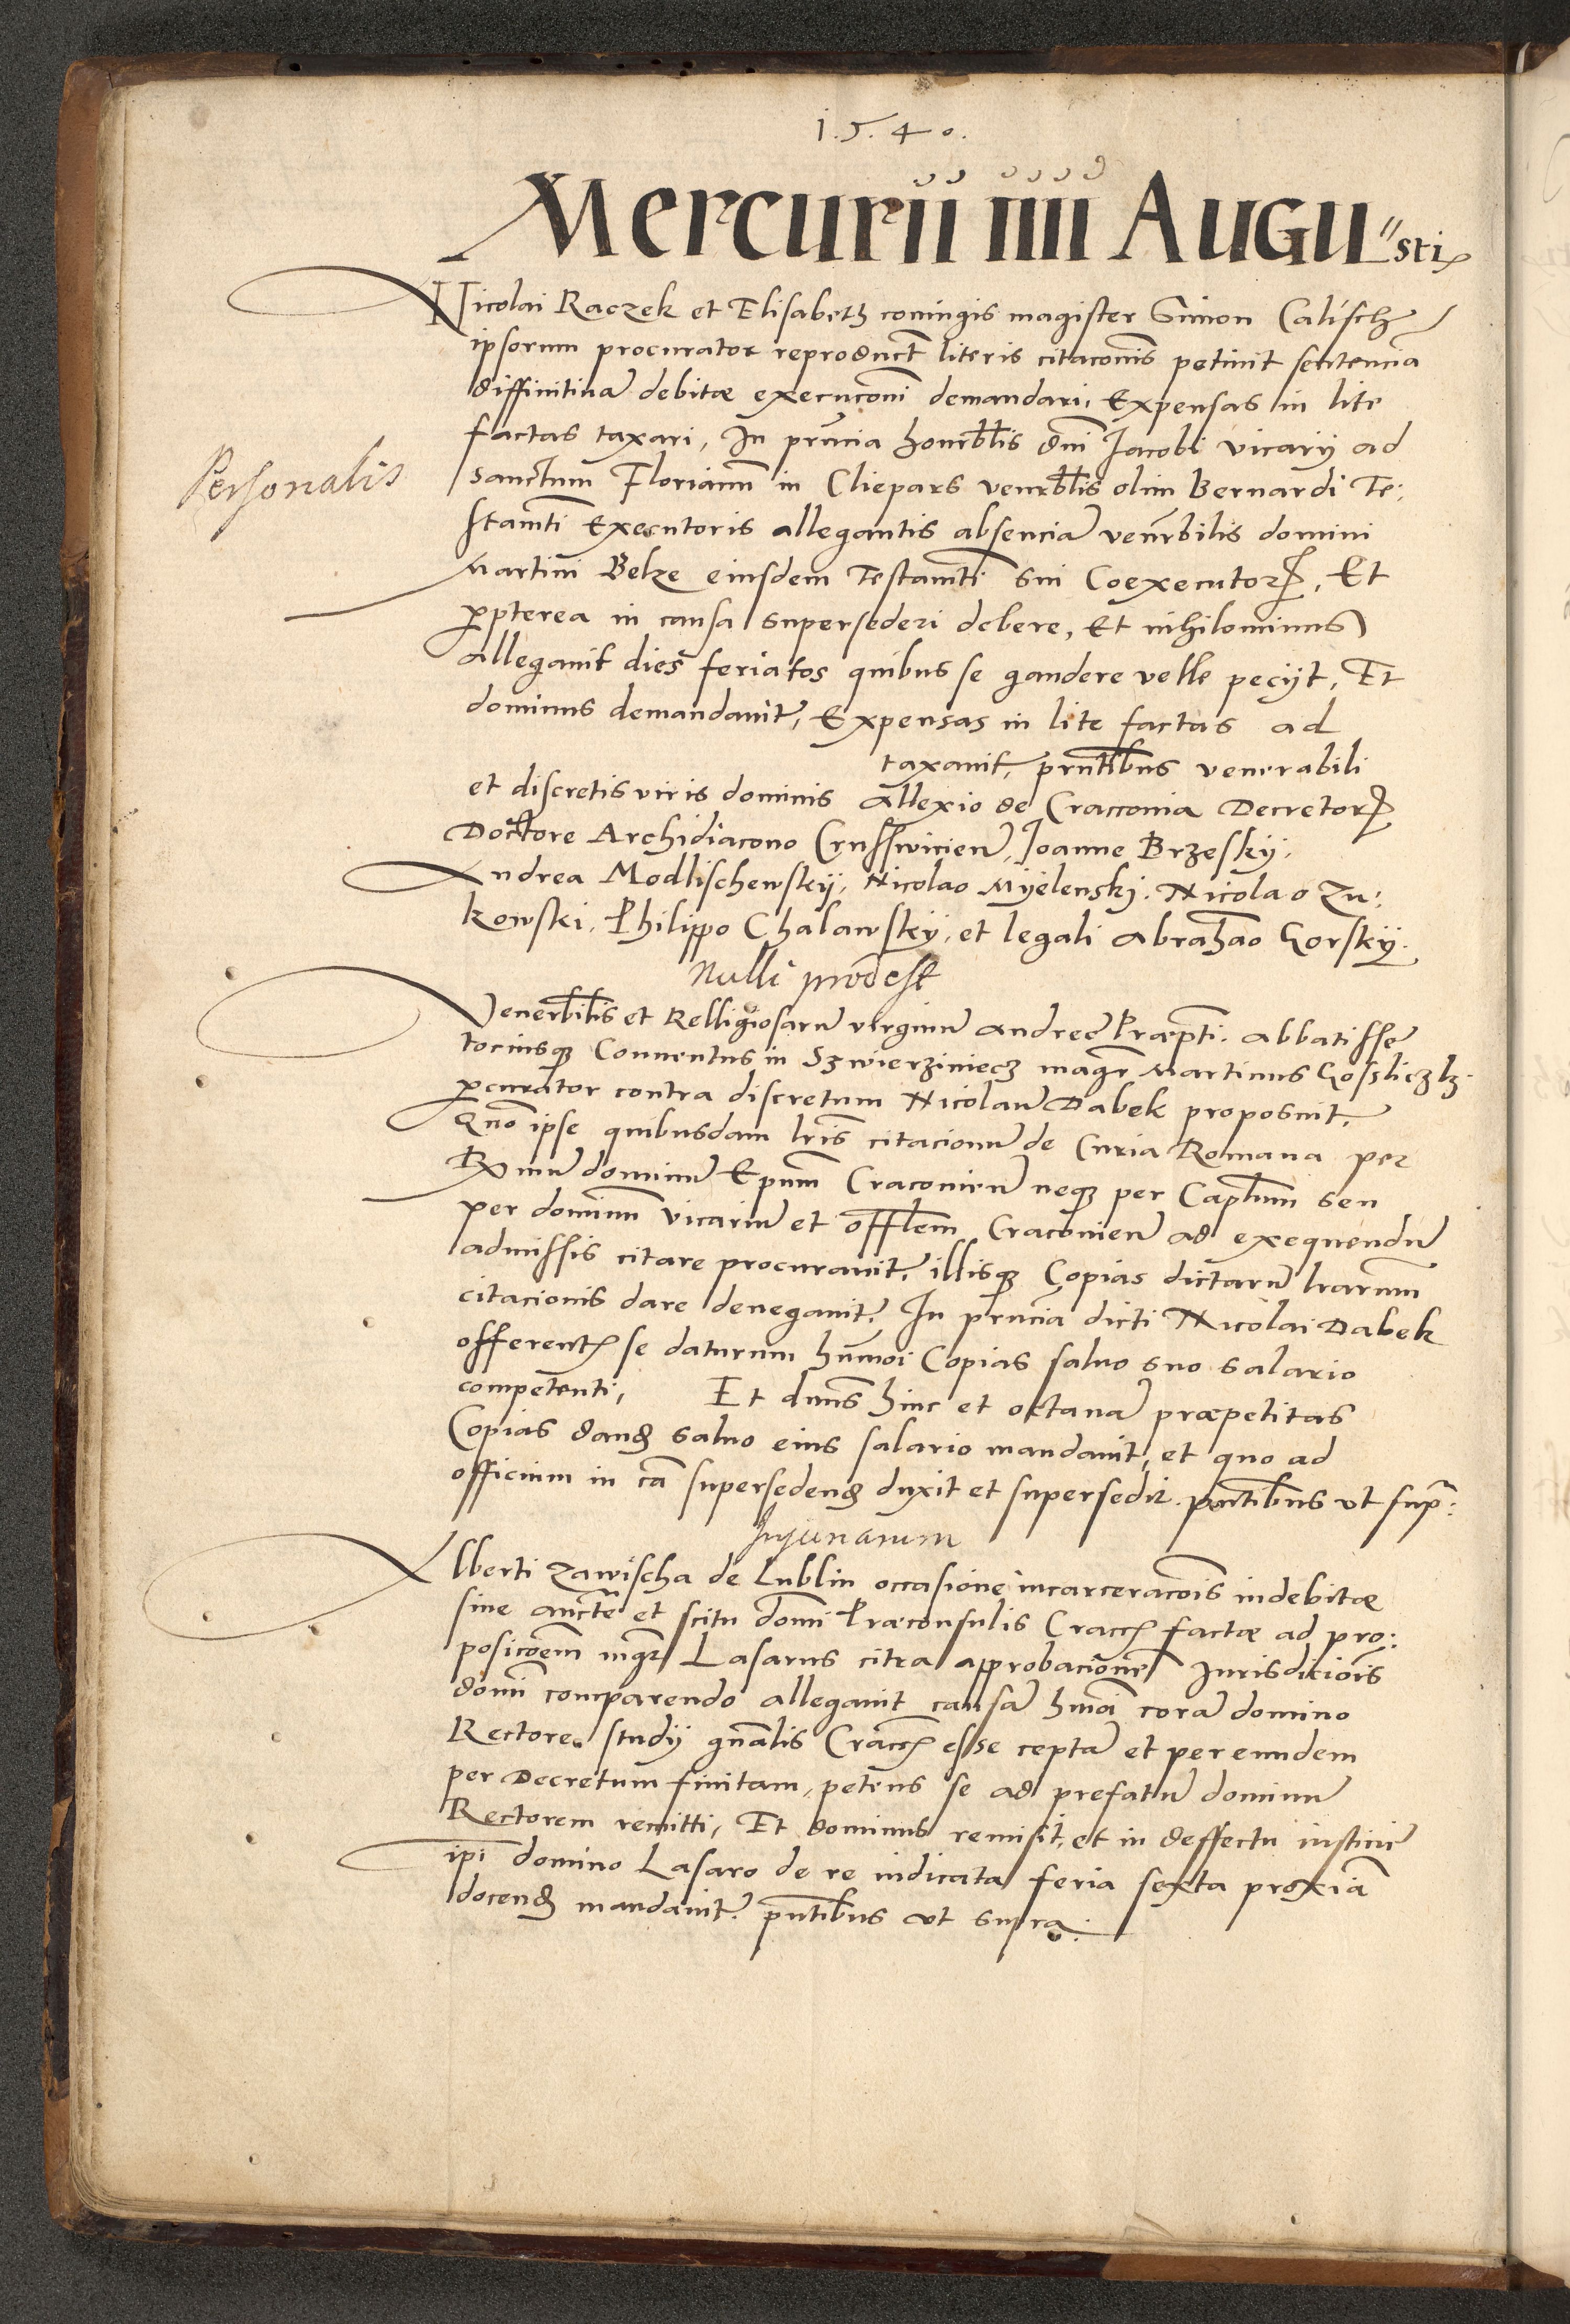 1.5.40.
Mercurii iiii Augu"sti
Nicolai Raczek et Elisabeth coniugis magister Simon Calisch
ipsorum procurator reproduct literis citaconis petiuit sentencia
diffinitiua debitæ execuconi demandari, Expensas in lite
factas taxari, In prncia honrblis dni Jacobi vicarij ad
Personalis
sanctum Florianu in Cliepars venrblis olim Bernardi Te:
stamti Executoris allegantis absencia venrbilis domini
Martini Belze eiusdem Testamti sui Coexecutor, Et
ppterea in causa supersederi debere, Et nihilominus
allegauit dies feriatos quibus se gaudere velle pecijt, Et
dominus demandauit, Expensas in lite factas ad
taxauit, prntibus venerabili
et discretis viris dominis Allexio de Cracouia Decretor
Doctore Archidiacono Crusswicien, Joanne Brzesky,
Andrea Modlischewskij, Nicolao Myelenskj. Nicolao Zu:
kowski, Philippo Chalawsky, et legali Abrahao Gorsky.
Nulli prodest
Venerbilis et Relligiosaru virginu Andree Præpti. Abbatisse
tociusque Conuentus in Szwierziniecz magr Martinus Goslicz
pcurator contra discretum Nicolau Dabek proposuit,
Quo ipse quibusdam lris citacionu de Curia Romana per
Rmu dominu Epum Cracouien neque per Caplum seu
per dominu vicariu et offlem Cracouien ad exequendu
admissis citare procurauit, illisque Copias dictaru lrarum
citacionis dare denegauit, In prncia dicti Nicolai Dabek
offerent se daturum humoi Copias saluo suo salario
competenti, Et dnus hinc et octaua præpetitas
Copias dand saluo eius salario mandauit, et quo ad
officium in ca supersedend duxit et supersedit. prntibus vt supra:
Injuriarum
Alberti Zawischa de Lublin occasione incarceracois indebitæ
sine aucte et scitu domi Præconsulis Cracc factæ ad pro:
posicoem mgr Lasarus citra approbacione Jurisdicióis
domi comparendo allegauit causa hmoi cora domino
Rectore studij gnalis Cracc esse cepta et per eundem
per Decretum finitam, petens se ad prefatu dominu
Rectorem remitti, Et dominus remisit, et in deffectu iusticie
ipi domino Lasaro de re iudicata feria sexta proxia
docend mandauit. pntibus vt supra.